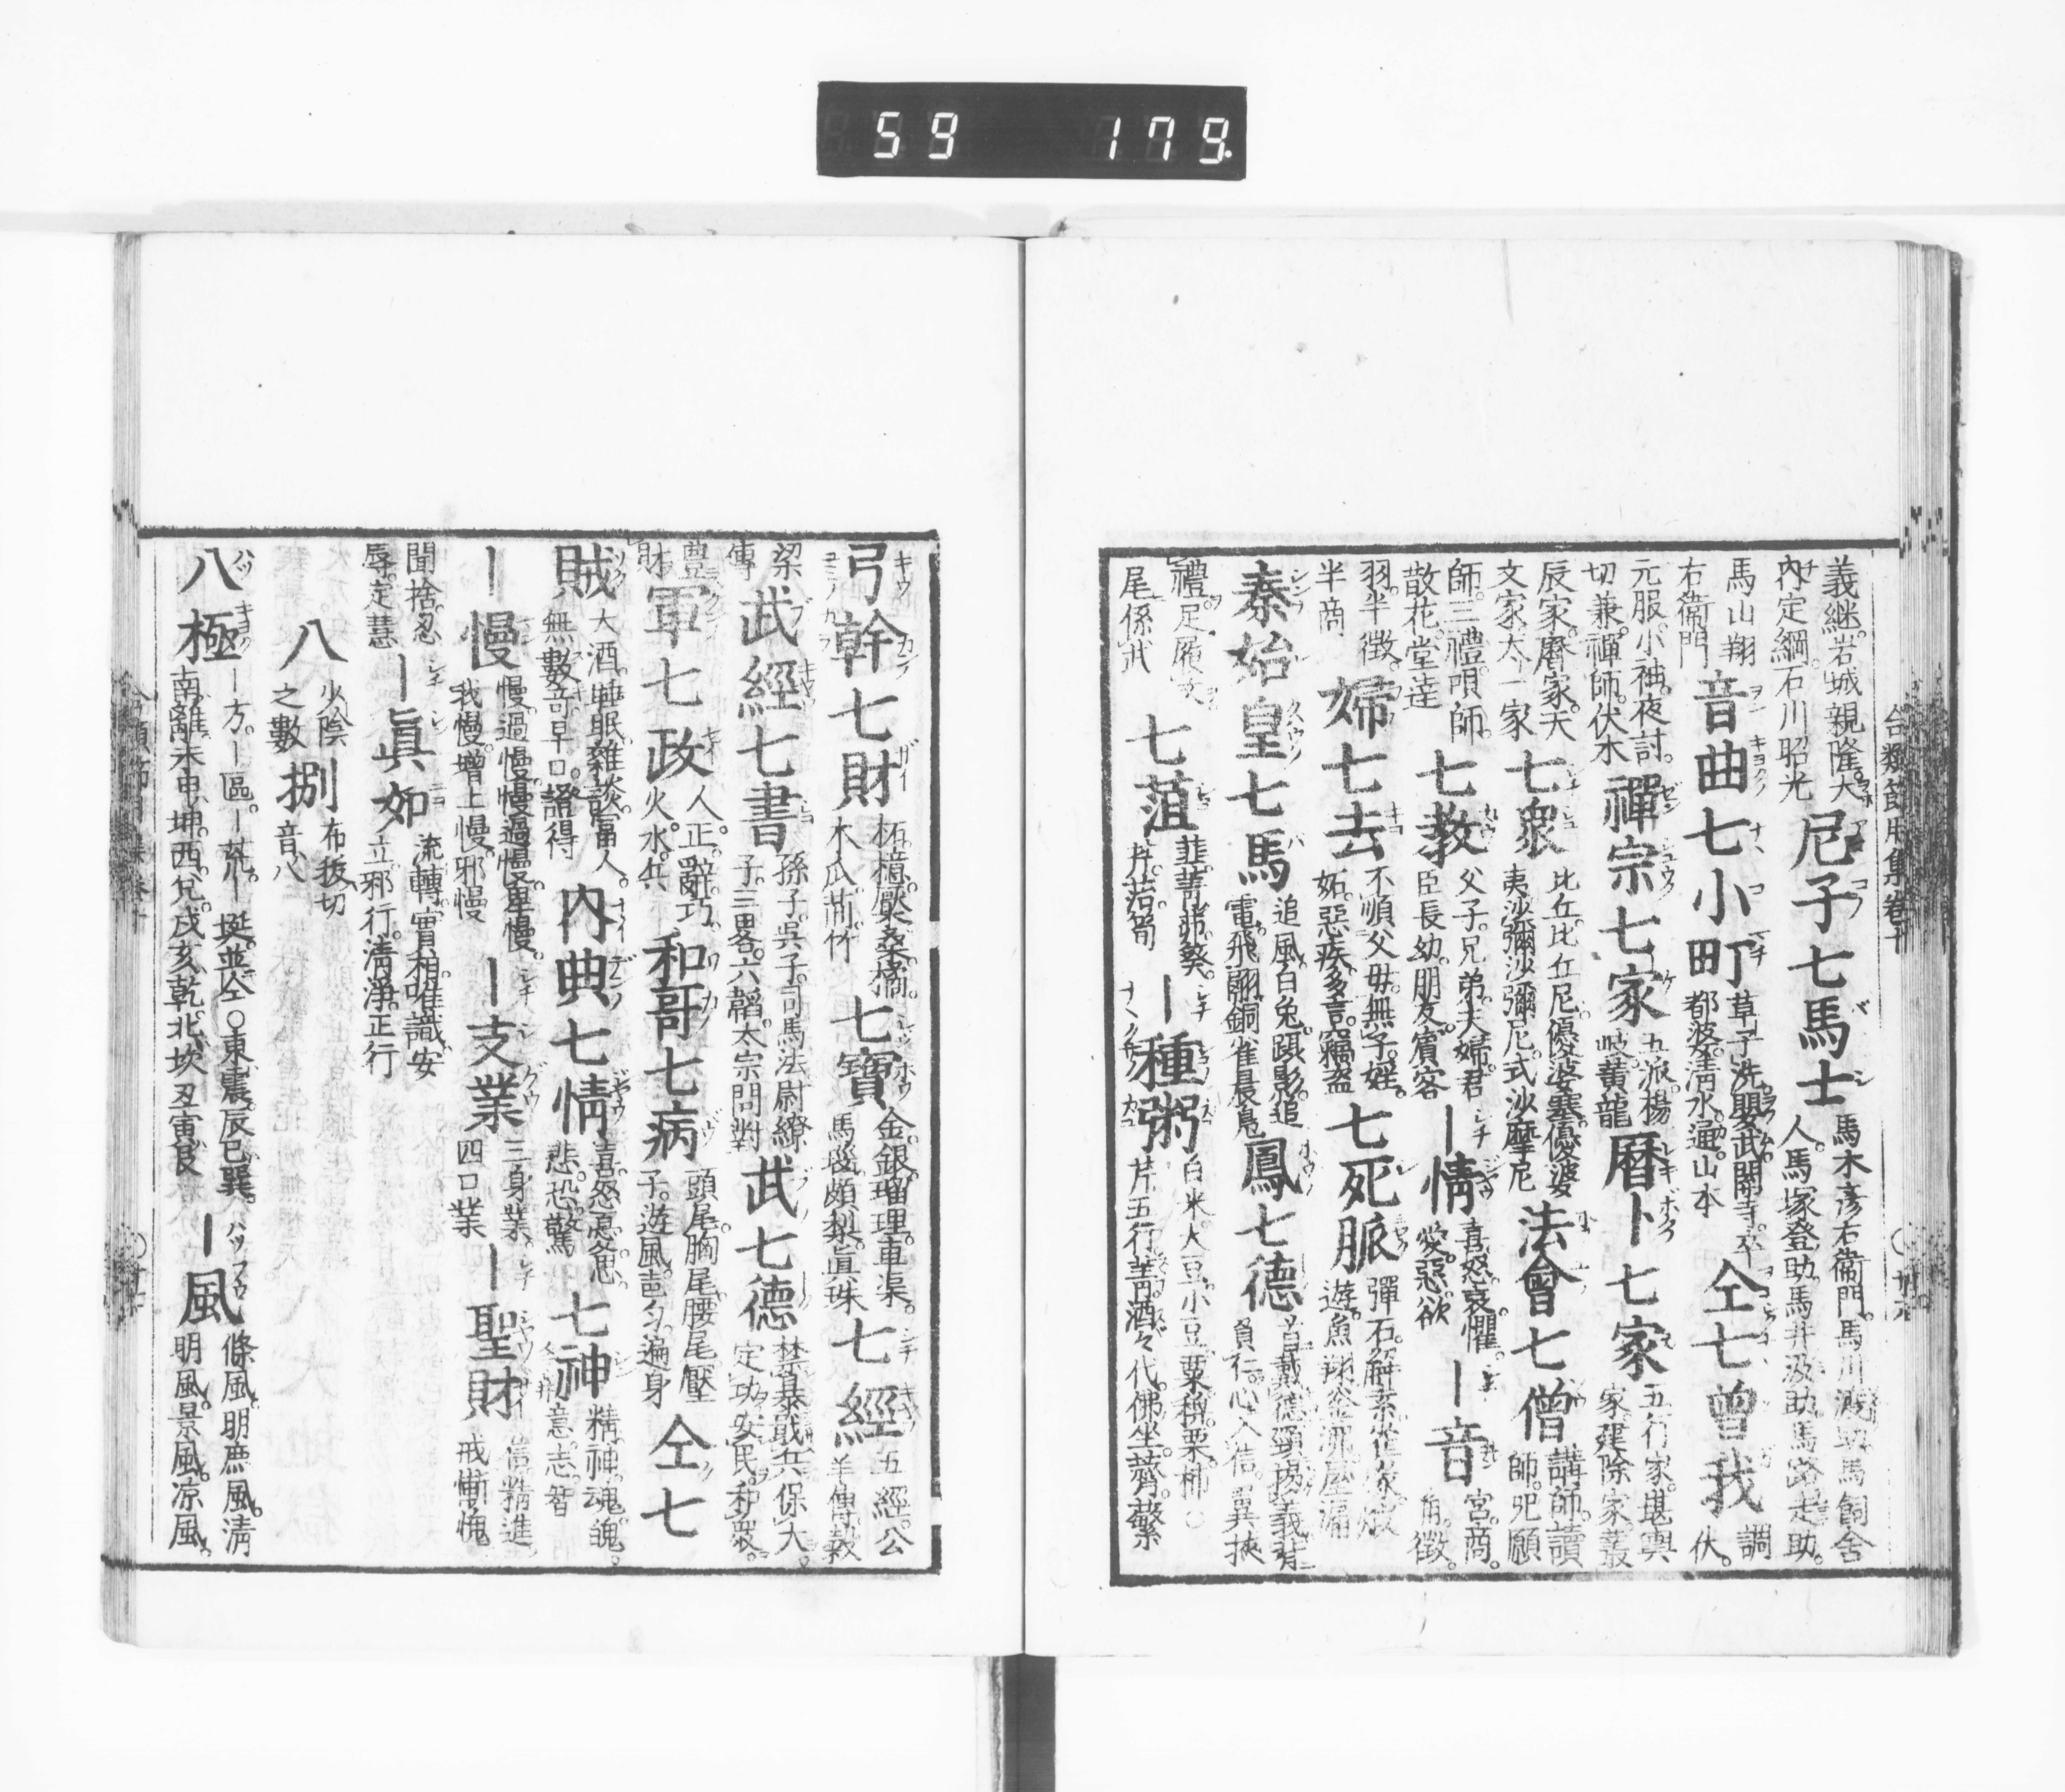 59 179
合類節用集卷十
義継。岩城親隆。大
内定綱。石川昭光
尼子七馬士
馬木彦右衛門。馬川渡助。馬飼舎
人。馬塚登助。馬井汲助。馬路走助。
馬山翔
右衛門
音曲七小町
草子洗。鸚武。關寺。卒
都婆。清水。通。山本
仝七曽我
調
伏。
元服。小袖。夜討。
切兼。禪師。伏木
禪宗七家
五派。楊
岐。黄龍
暦卜七家
五行家。堪輿
家。建除家。叢
辰家。暦家。天
文家。太一家
七衆
比丘。比丘尼。優婆塞。優婆
夷。沙彌。沙彌尼。式沙摩尼
法會七僧
講師。讀
師。咒願
師。三禮。唄師。
散花。堂達
七教
父子。兄弟。夫婦。君
臣。長幼。朋友。賓客
｜情
喜。怒。哀。懼。
愛。惡。欲
｜音
宮。商。
角。徴。
羽。半徴。
半商
婦七去
不順父毋。無子。婬。
妬。惡疾。多言。竊盗
七死脈
彈石。解索。雀啄。
遊。魚翔。釜沸。屋漏
秦始皇七馬
追風。白兎。躡影。追
電。飛翮。銅雀。晨鳬
鳳七德
首戴德。頸揭義。背
負仁。心入信。翼挾
禮。足履文。
尾係武
七菹
韮。菁。茆。葵。
芹。菭。筍
｜種粥
白米。大豆。小豆。粟。稗。栗。柿。○
芹。五行。菁。酒々代。佛坐。薺。蘩
弓幹七財
柘。檍。檿桑。橘。
木瓜。荊。竹
七寶
金。銀。瑠理。車渠。
馬瑙。頗梨。眞珠
七經
五經。公
羊傳。穀
梁
傳
武經七書
孫子。呉子。司馬法。尉繚
子。三畧。六韜。太宗問對
武七德
禁暴。戢兵。保大。
定功。安民。和衆。
豊
財
軍七政
人。正。辭。巧。
火。水。兵
和哥七病
頭尾。胸尾。腰尾。壓
子。遊風。
遍身
仝七
賊
大酒。睡眠。雜談。冨人。
無數竒。早口。證得
内典七情
喜。怒。憂。思。
悲。恐。驚
七神
精。神。魂。魄。
意。志。智
｜慢
慢。過慢。慢過慢。卑慢。
我慢。增上慢。邪慢
｜支業
三身業。
四口業
｜聖財
信。精進。
戒。慚愧
聞。捨。忍
辱。定慧
｜眞如
流轉。實相。唯識。安
立。邪行。清淨。正行
八
少陰
之數
捌
布拔切
音八
八極
｜方。｜區。｜荒。｜挻。並仝○東震。辰巳巽。
南離。未申坤。西兌。戌亥乾。北坎。丑寅艮
｜風
條風。明庶風。清
明風。景風。凉風。